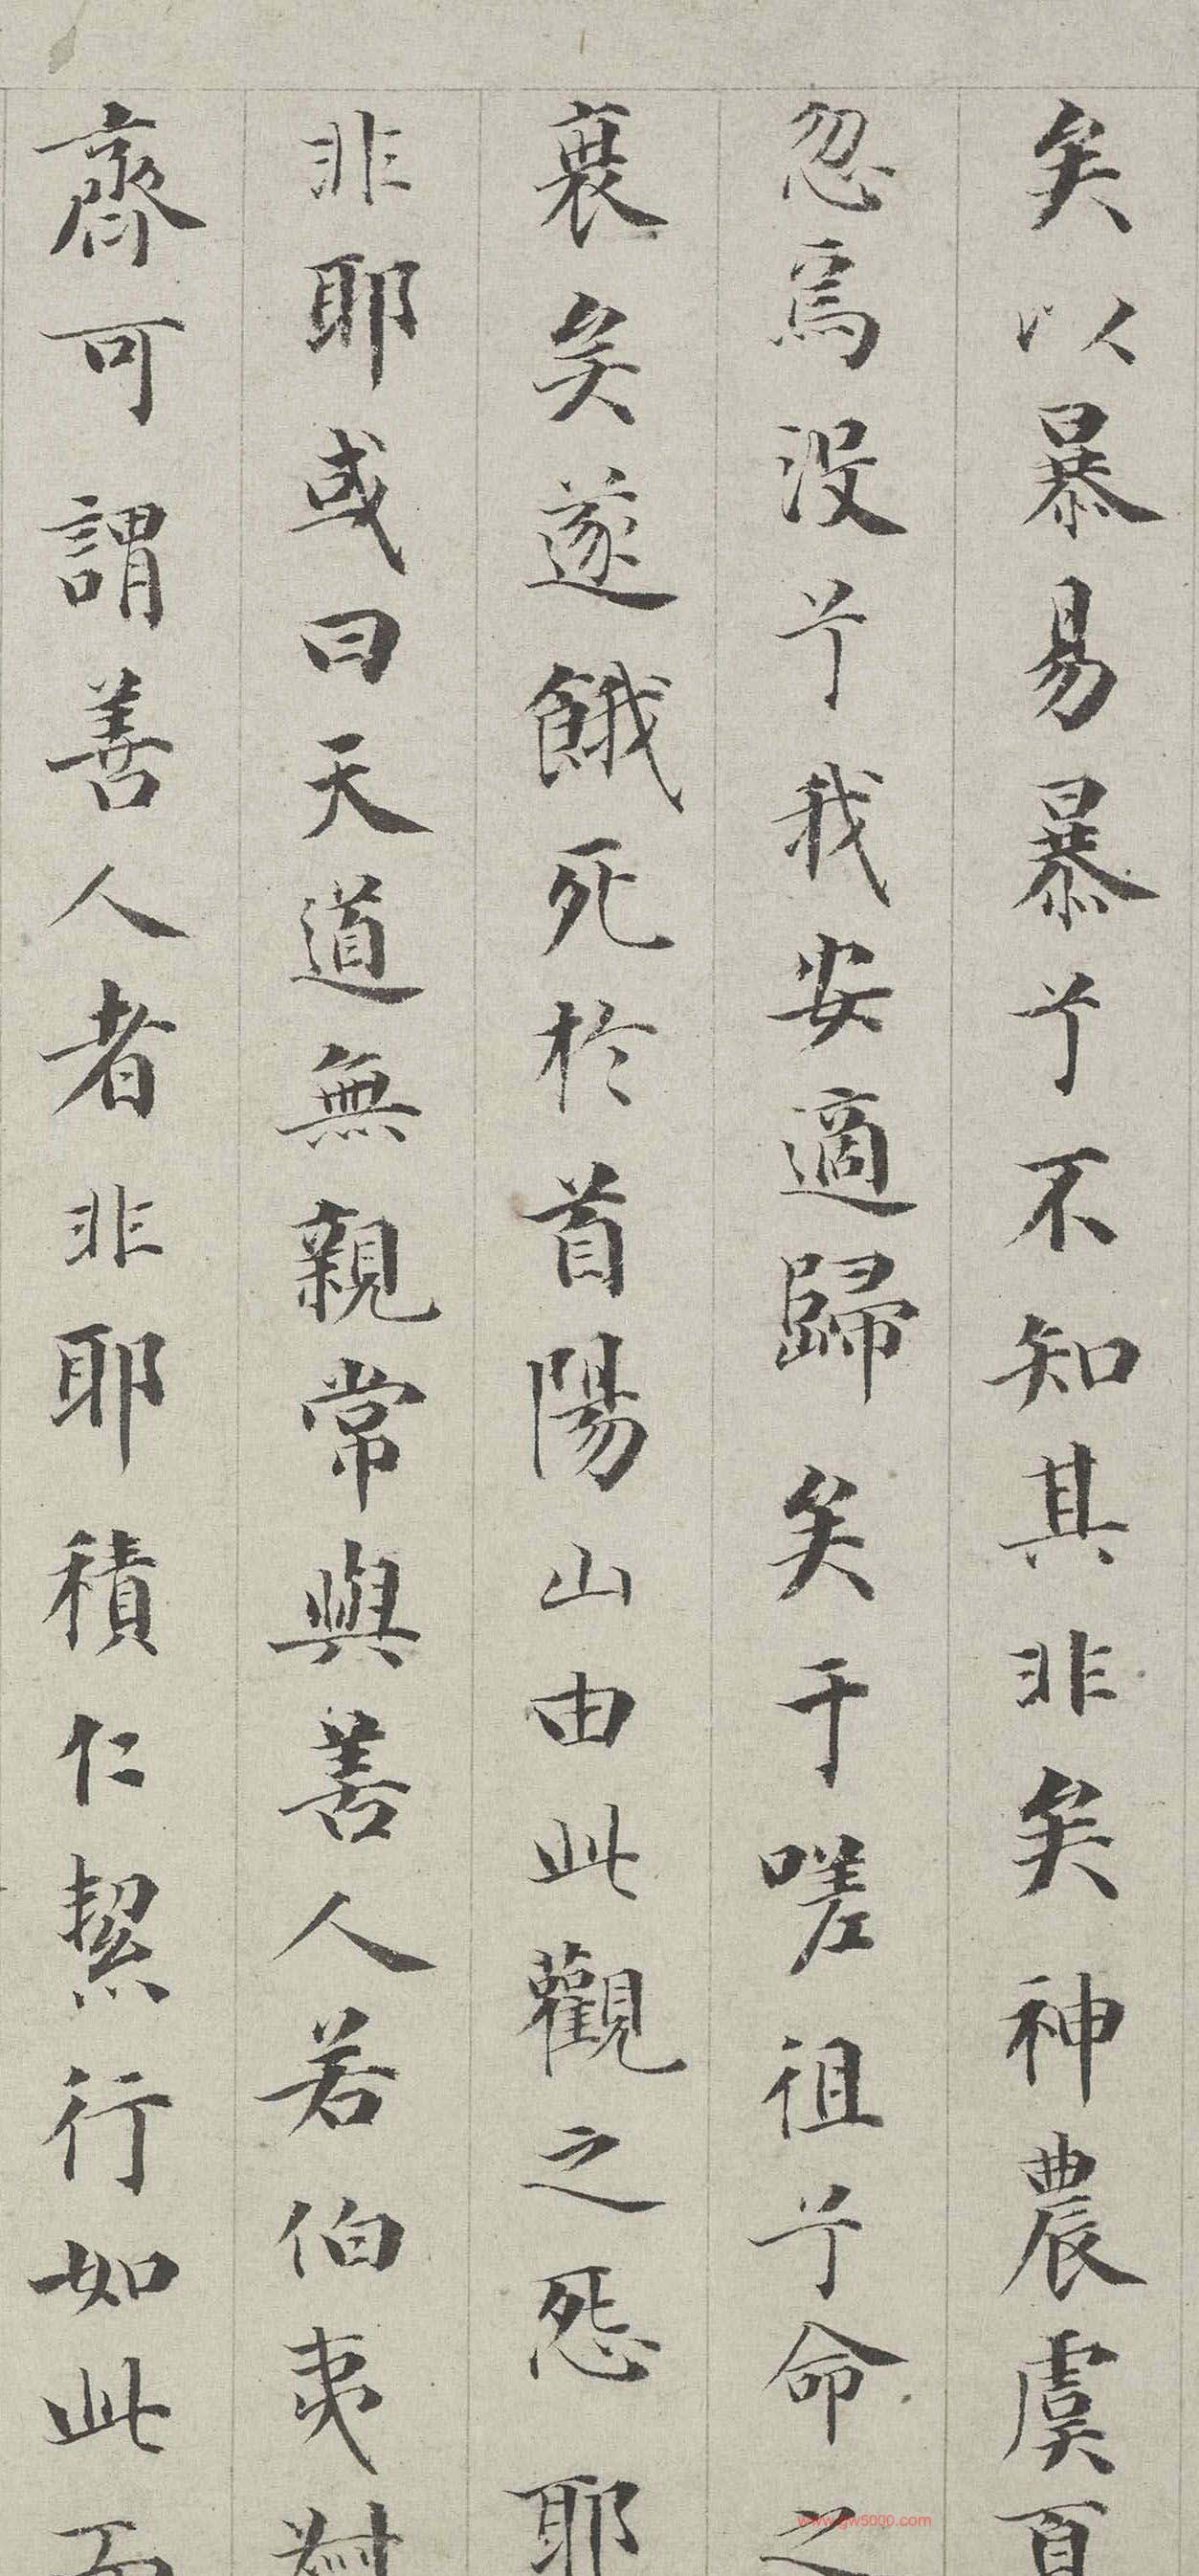 矣以暴易暴兮不知其非矣神農虞夏
忽焉没兮我安適歸矣于嗟徂兮命之
衰矣遂餓死於首陽山由此觀之怨耶
非耶或曰天道無親常與善人若伯夷叔
齊可謂善人者非耶積仁絜行如此而
www.gw5000.com